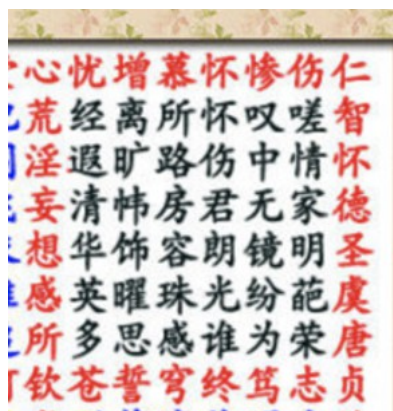 心忧增慕怀惨伤仁
荒经离所怀叹嗟智
淫遐旷路伤中情怀
妄清帏房君无家德
想华饰容朗镜明圣
感英曜珠光纷葩虞
所多思感谁为荣唐
钦苍誓穹终笃志贞